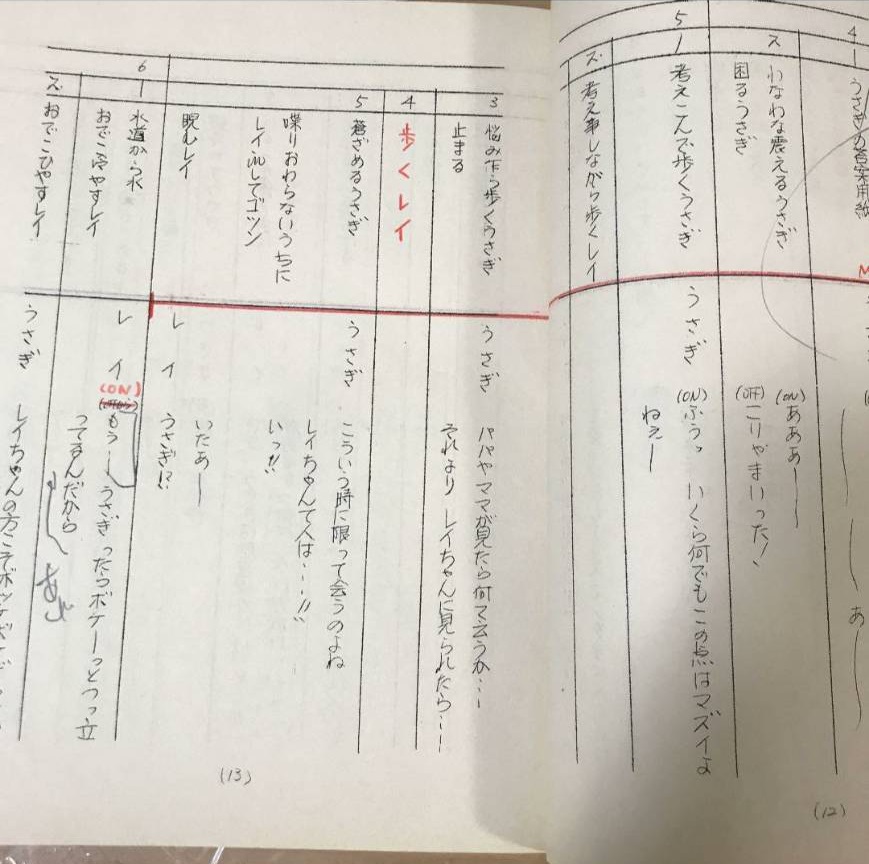 4
うさぎの答案用紙
あ
ス
わなわな震えるうさぎ
困るうさぎ
(ON)
あああ——
(OFF)
こりゃまいった!
5
1
考えこんで歩くうさぎ
うさぎ
(ON)
ふうっ いくら何でもこの点はマズイよ
ねえー
ズ
考え事しながら歩くレイ
(12)
3
悩み乍ら歩くうさぎ
止まる
うさぎ
パパやママが見たら何て云うか…
それより レイちゃんに見られたら…
4
歩くレイ
5
蒼ざめるうさぎ
喋りおわらないうちに
レイ inしてゴツン
睨むレイ
うさぎ
こういう時に限って会うのよね
レイちゃんて人は…!!
いっ!!
いたあ——
レイ
うさぎ!?
6
1
水道から水
おでこ冷やすレイ
レイ
(ON)
もう…うさぎったらボケーっとつっ立
ってるんだから
ズ
おでこひやすレイ
うさぎ
レイちゃんの方こそ
(13)